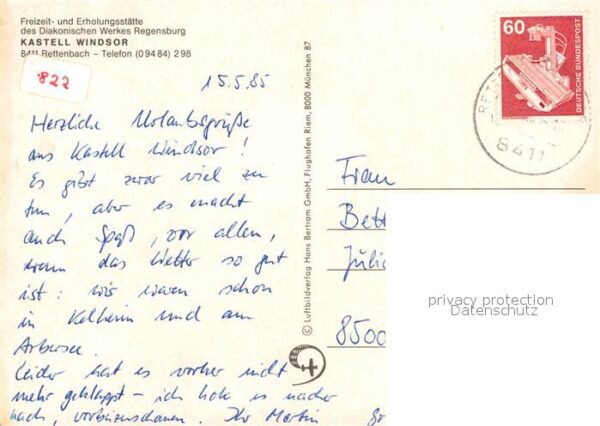 Freizeit- und Erholungsstätte
des Diakonischen Werkes Regensburg
KASTELL WINDSOR
8411 Rettenbach – Telefon (0 94 84) 2 98
822
15.5.85
Herzliche Urlaubsgrüße
aus Kastell Windsor!
Es gibt zwar viel zu
tun, aber es macht
auch Spaß, vor allen,
wenn das Wetter so gut
ist: wir waren schon
in Kelheim und am
Arbersee.
Leider hat es vorher nicht
mehr geklappt – ich hole es nacher
nach, vorbeizuschauen. Ihr Martin
© Luftbildverlag Hans Bertram GmbH, Flughafen Riem, 8000 München 87
60
DEUTSCHE BUNDESPOST
8411
Frau
Bett
Julia
8500
privacy protection
Datenschutz